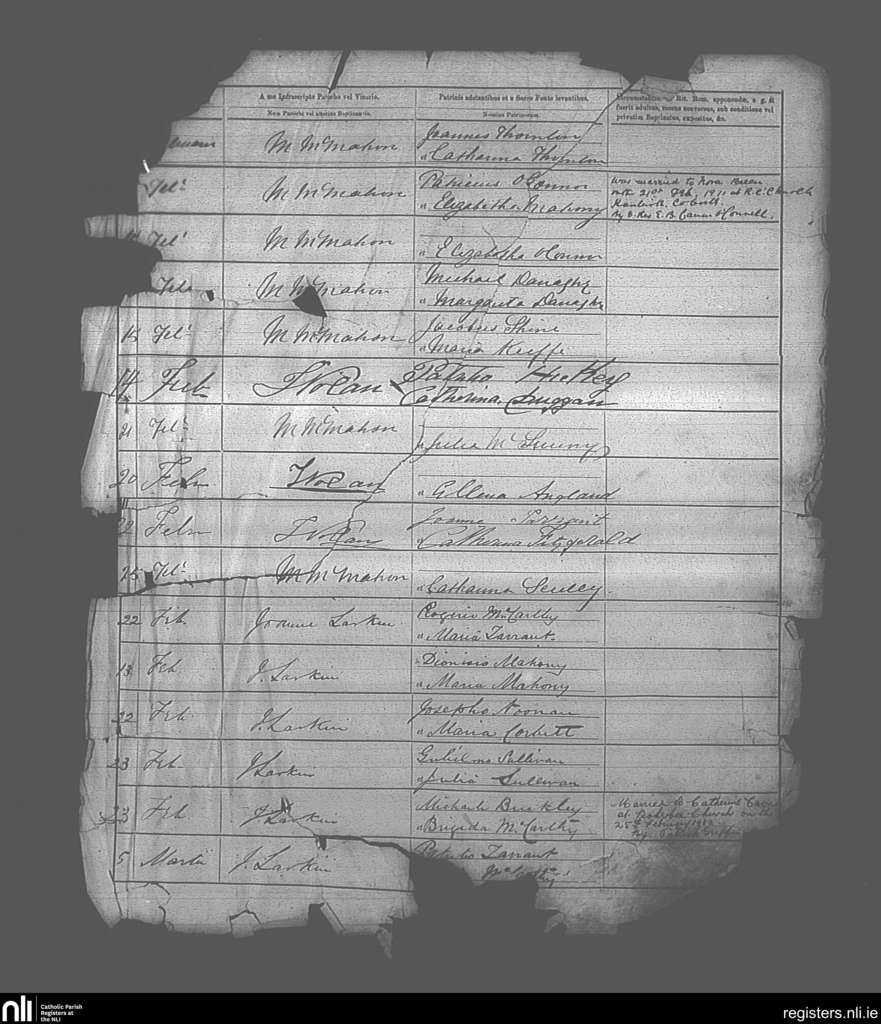 A me Infrascripto Parocho vel Vicario.
Patrinis adstantibus et a Sacro Fonte levantibus.
Rit. Rom. apponendæ, e. g. si
fuerit adultus, recens conversus, sub conditione vel
privatim Baptizatus, expositus, &c.
Nom Parochi vel alterius Baptizantis.
Nomina Patrinorum.
M McMahon
Joannes Thornton
" Catharina Thornton
Feb
M McMahon
Patricius O'Connor
" Elizabetha Mahony
was married to Nora
on the 21st Feb, 1911 at R.C. Church
Kanturk, Co Cork.
by O'Connell.
Feb
M McMahon
" Elizabetha O'Connor
Feb
M McMahon
Michael Danaghy
" Margarita Danaghy
15 Feb
M McMahon
Jacobus Shine
" Maria Keiffe
14 Feb
T Nolan
Hickey
Catherina Duggan
21 Feb
M McMahon
" Julia McSweeny
20 Feb
T Nolan
" Ellena Angland
22 Feb
T Nolan
Tarrant
" Catherina Fitzgerald
25 Feb
M McMahon
" Catharina Sculley
22 Feb
Joanne Larkin
Rogerio McCarthy
" Maria Tarrant.
13 Feb
J. Larkin
Dionisio Mahony
" Maria Mahony
22 Feb
J. Larkin
Josepho Noonan
" Maria Corbett
23 Feb
J Larkin
Gulielmo Sullivan
" Julia Sullivan
23 Feb
J. Larkin
Michaele Buckley
" Brigida McCarthy
Married to Catherine
at Church on the
25th February
by
5 Martii
J. Larkin
Tarrant
McCarthy
nli
Catholic Parish
Registers at
the NLI
registers.nli.ie